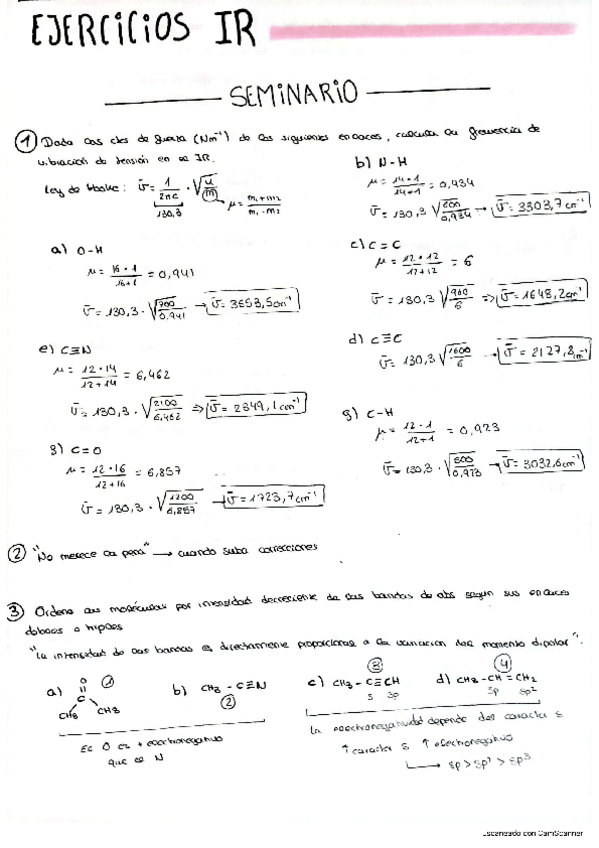 EJERCICIOS IR
SEMINARIO
① Dada las ctes de fuerza (Nm⁻¹) de los siguientes enlaces, calcular la frecuencia de
vibración de tensión en el IR.
Ley de Hooke: ῡ = 1/2πc · √(u/m)
130,3
μ = m₁+m₂/m₁·m₂
b) N-H
μ = 14·1/14+1 = 0,934
ῡ = 130,3 √(600/0,934) → ῡ = 3303,7 cm⁻¹
a) O-H
μ = 16·1/16+1 = 0,941
ῡ = 130,3 · √(700/0,941) → ῡ = 3553,5 cm⁻¹
c) C=C
μ = 12·12/12+12 = 6
ῡ = 130,3 √(960/6) ⇒ ῡ = 1648,2 cm⁻¹
d) C≡C
ῡ = 130,3 √(1600/6) → ῡ = 2127,8 cm⁻¹
e) C≡N
μ = 12·14/12+14 = 6,462
ῡ = 130,3 · √(2100/6,462) ⇒ ῡ = 2349,1 cm⁻¹
g) C-H
μ = 12·1/12+1 = 0,923
ῡ = 130,3 · √(500/0,923) → ῡ = 3032,6 cm⁻¹
g) C=O
μ = 12·16/12+16 = 6,857
ῡ = 130,3 · √(1200/6,857) → ῡ = 1723,7 cm⁻¹
② "No merece la pena" → cuando suba correcciones
③ Ordena las moléculas por intensidad decreciente de las bandas de abs según sus enlaces
dobles o triples
"La intensidad de las bandas es directamente proporcional a la variación del momento dipolar".
a) O C CH₃ CH₃ ①
b) CH₃ - C≡N ②
c) CH₃ - C≡CH ③
s sp
d) CH₃ - CH = CH₂ ④
sp sp²
El O es + electronegativo
que el N
La electronegatividad depende del caracter s
↑ caracter s ↑ electronegativo
→ sp > sp² > sp³
Escaneado con CamScanner